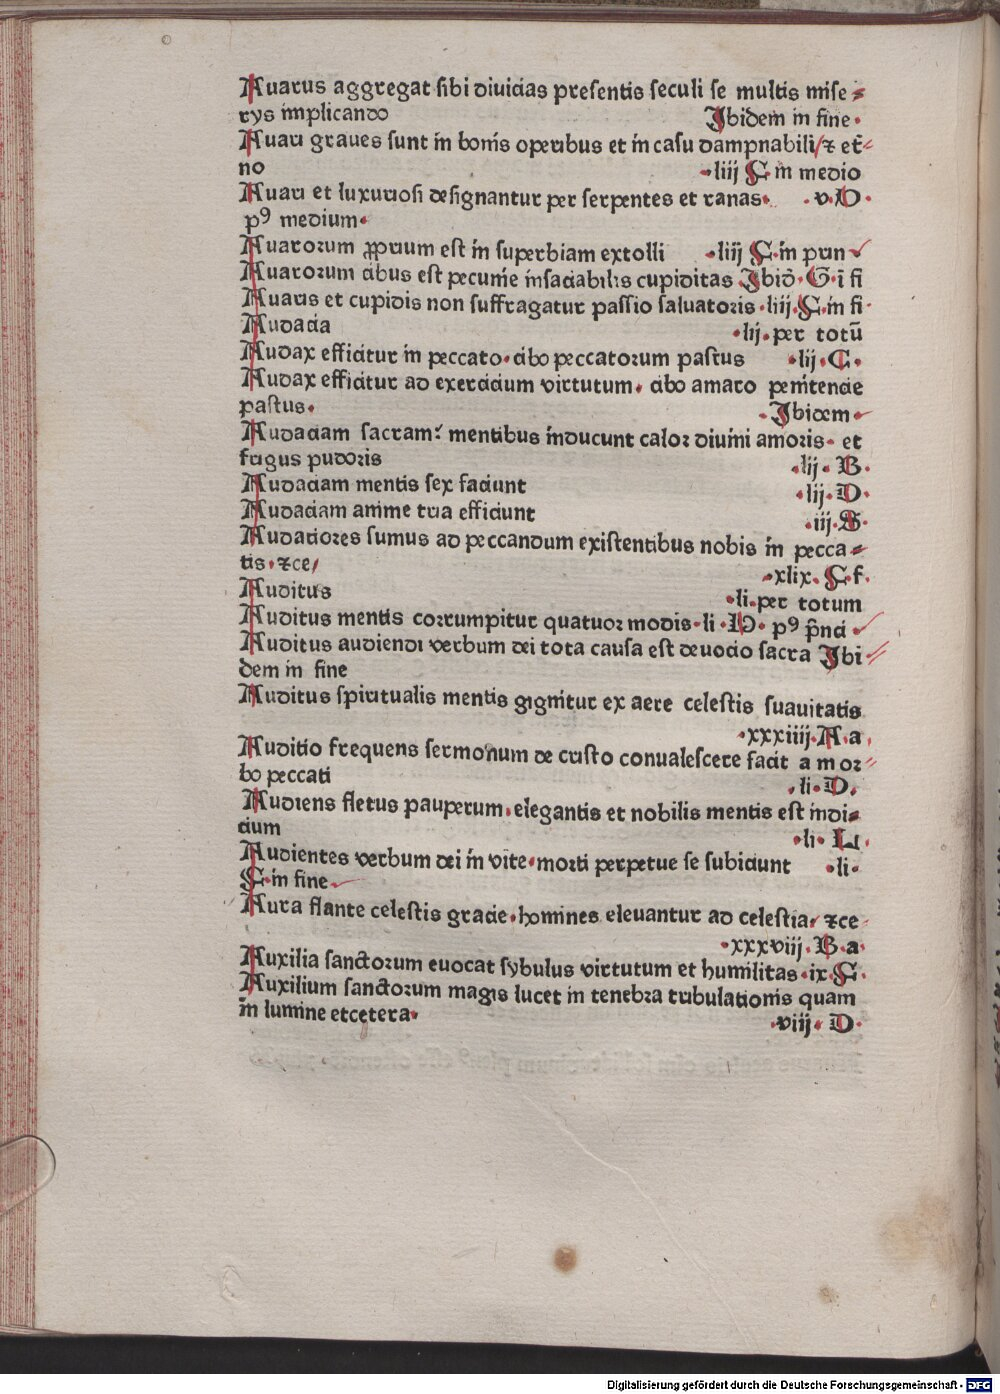 Auarus aggregat sibi diuicias presentis seculi se multis mise⸗
rys implicando Ibidem in fine.
Auari graues sunt in bonis operibus et in casu dampnabili/ ⁊ et̄⸗
no .liij E in medio
Auari et luxuriosi designantur per serpentes et ranas. .v.D.
pꝰ medium.
Auarorum ꝓprium est in superbiam extolli .liij E.in prin
Auarorum cibus est pecunie insaciabilis cupiditas Ibid̄.G.ī fi
Auaris et cupidis non suffragatur passio saluatoris.liij.E.in fi.
Audacia .lij.per totū
Audax efficitur in peccato.cibo peccatorum pastus .lij.C.
Audax efficitur ad exercicium virtutum. cibo amaro penitencie
pastus. .Ibidem.
Audaciam sacram: mentibus inducunt calor diuini amoris. et
frigus pudoris .lij.B.
Audaciam mentis sex faciunt .lij.D.
Audaciam anime tria efficiunt .iij.
Audatiores sumus ad peccandum existentibus nobis in pecca⸗
tis.⁊ce/ .xlix.E.f.
Auditus .li.per totum
Auditus mentis corrumpitur quatuor modis.li. . pꝰ p̄nci.
Auditus audiendi verbum dei tota causa est deuocio sacra Ibi
dem in fine
Auditus spiritualis mentis gignitur ex aere celestis suauitatis
.xxxiiij.A.a.
Auditio frequens sermonum de cristo conualescere facit a mor
bo peccati .li.D.
Audiens fletus pauperum.elegantis et nobilis mentis est indi⸗
cium .li.
Audientes verbum dei in vite.morti perpetue se subiciunt .li.
E.in fine.
Aura flante celestis gracie.homines eleuantur ad celestia/ ⁊ce
.xxxviij.B.a.
Auxilia sanctorum euocat sybulus virtutum et humilitas.ix.E.
Auxilium sanctorum magis lucet in tenebra tribulationis quam
in lumine etcetera. .viij.D.
Digitalisierung gefördert durch die Deutsche Forschungsgemeinschaft - DFG